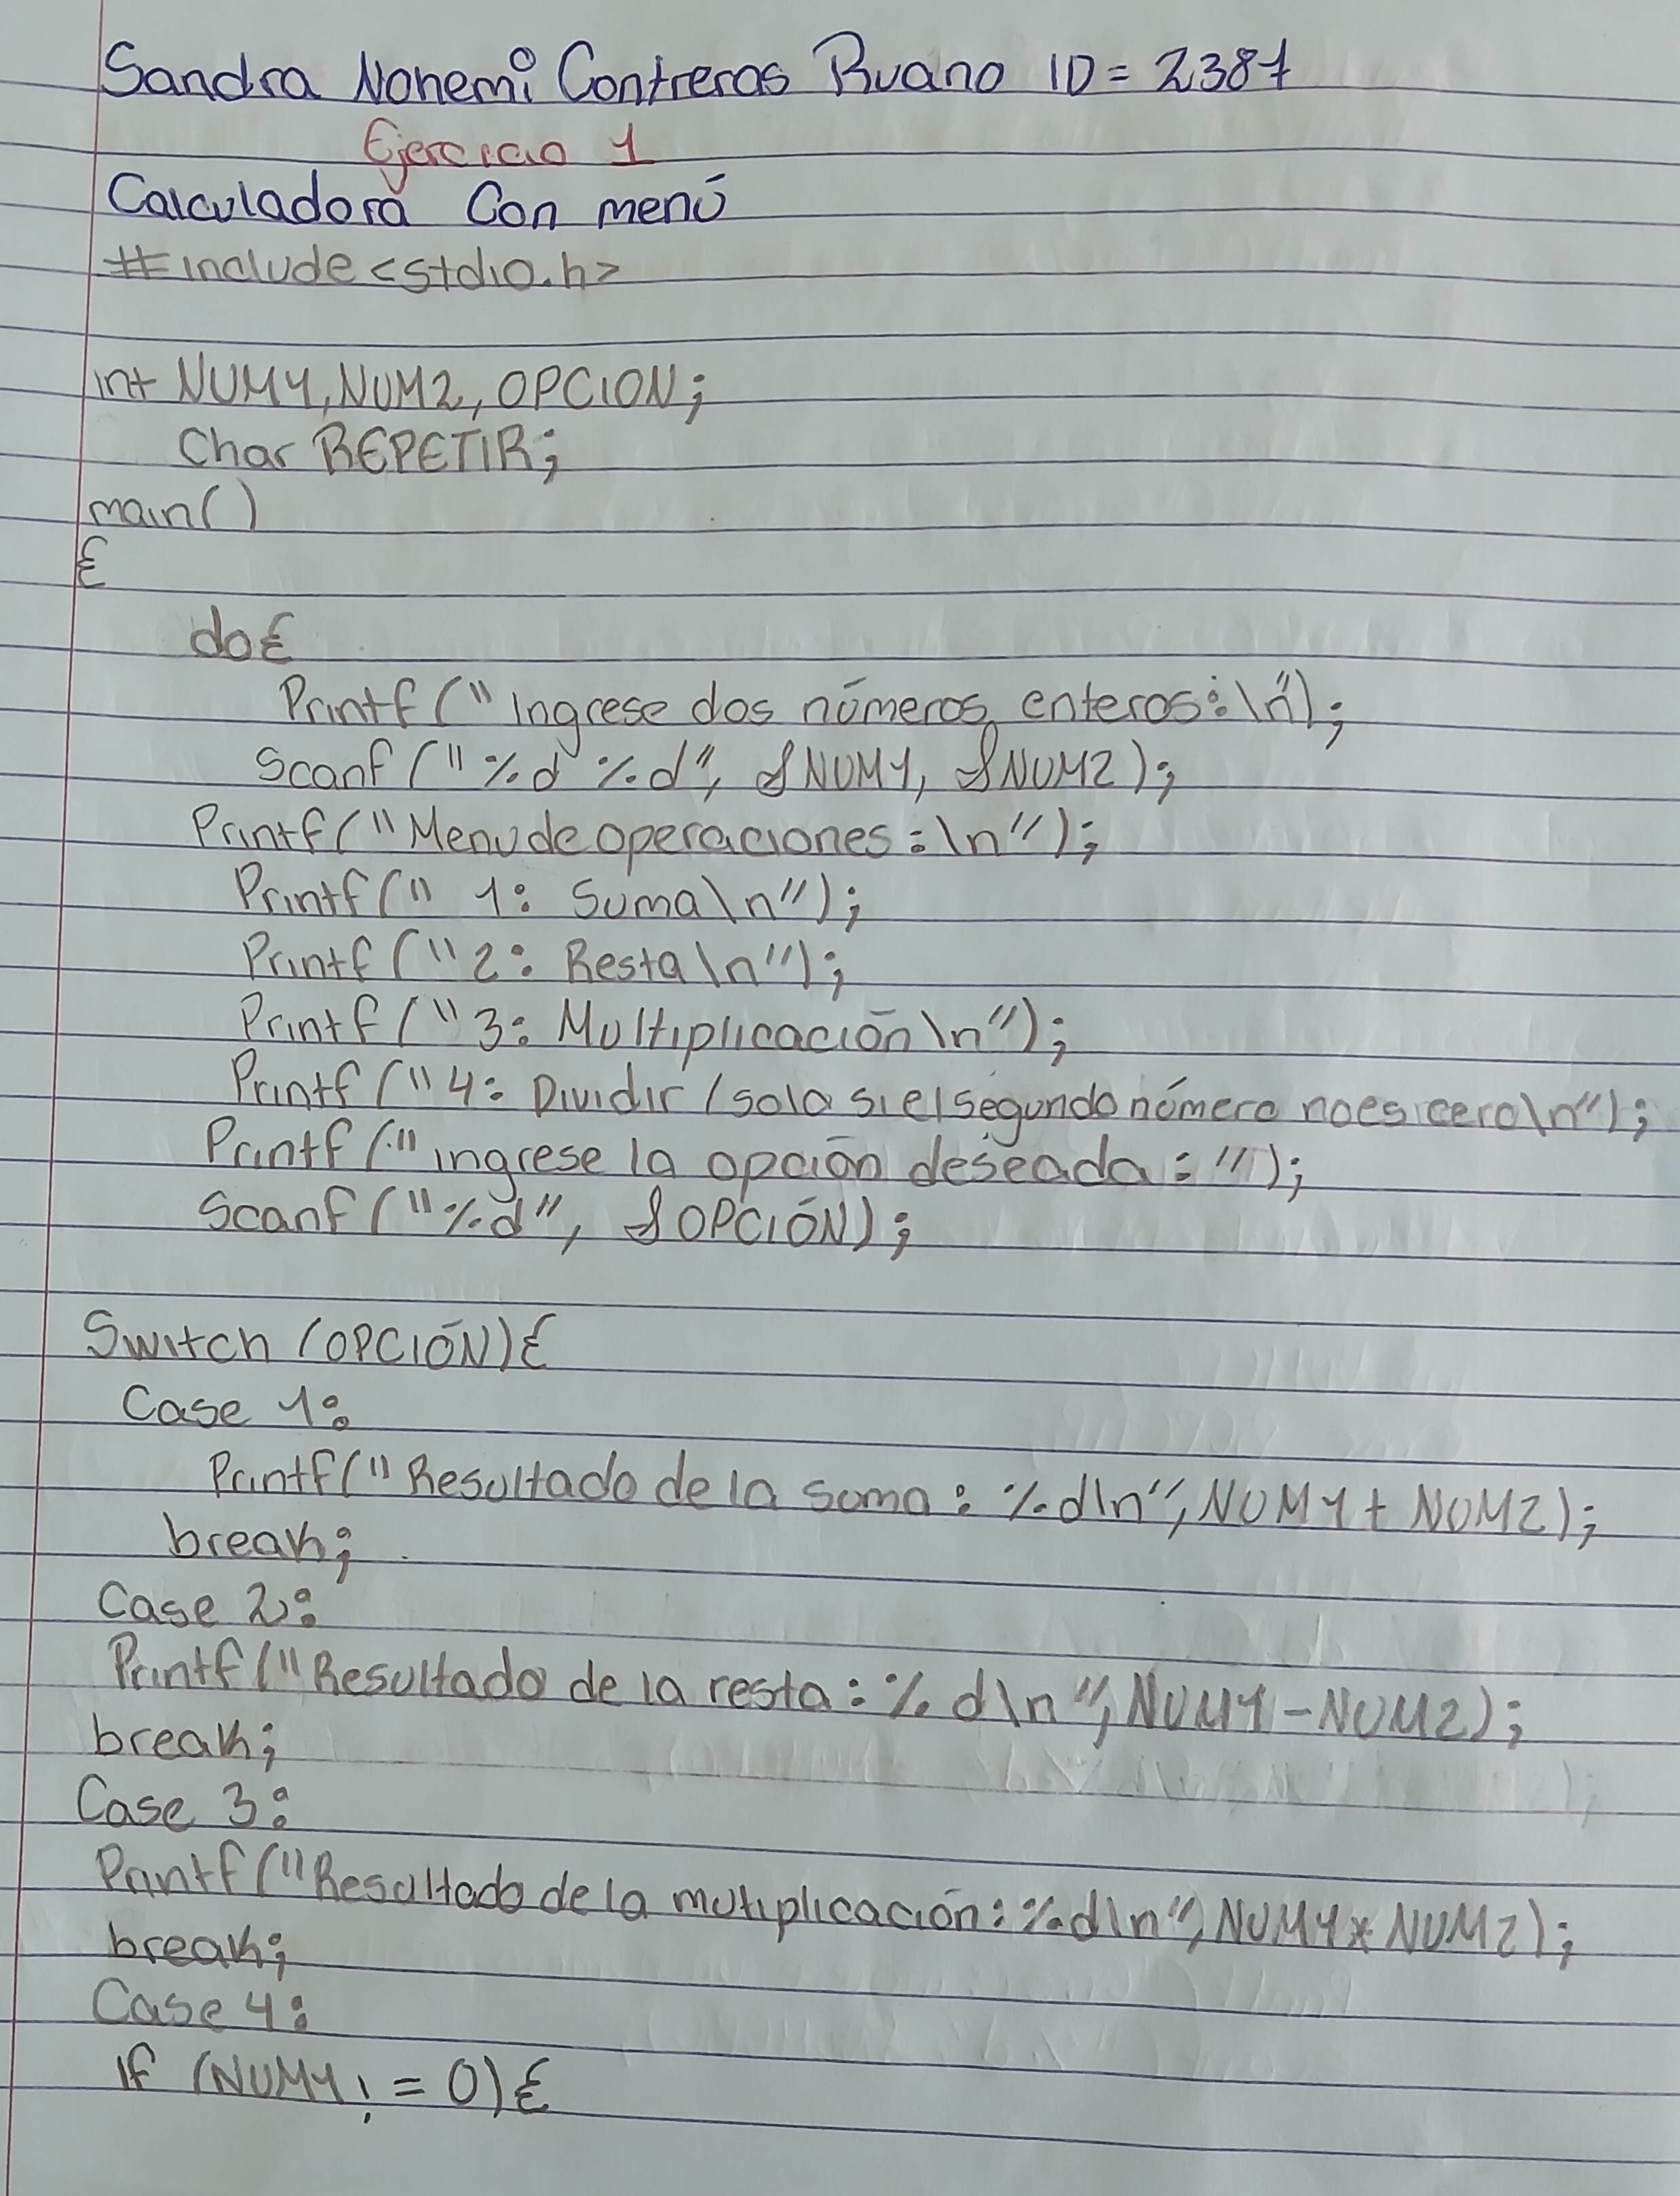 Sandra Nohemi Contreras Ruano ID = 2387
Ejercicio 1
Calculadora Con menú
#include <stdio.h>
int NUM1, NUM2, OPCION;
Char REPETIR;
main()
{
do{
Printf ("Ingrese dos números enteros:\n");
Scanf ("%d %d", &NUM1, &NUM2);
Printf ("Menu de operaciones:\n");
Printf (" 1: Suma\n");
Printf ("2: Resta\n");
Printf ("3: Multiplicación\n");
Printf ("4: Dividir (solo si el segundo número no es cero\n");
Printf ("ingrese la opción deseada: ");
Scanf ("%d", &OPCIÓN);
Switch (OPCIÓN){
Case 1:
Printf ("Resultado de la suma: %d\n", NUM1 + NUM2);
break;
Case 2:
Printf ("Resultado de la resta: %d\n", NUM1 - NUM2);
break;
Case 3:
Printf ("Resultado de la mutiplicación: %d\n", NUM1 * NUM2);
break;
Case 4:
If (NUM1 != 0){